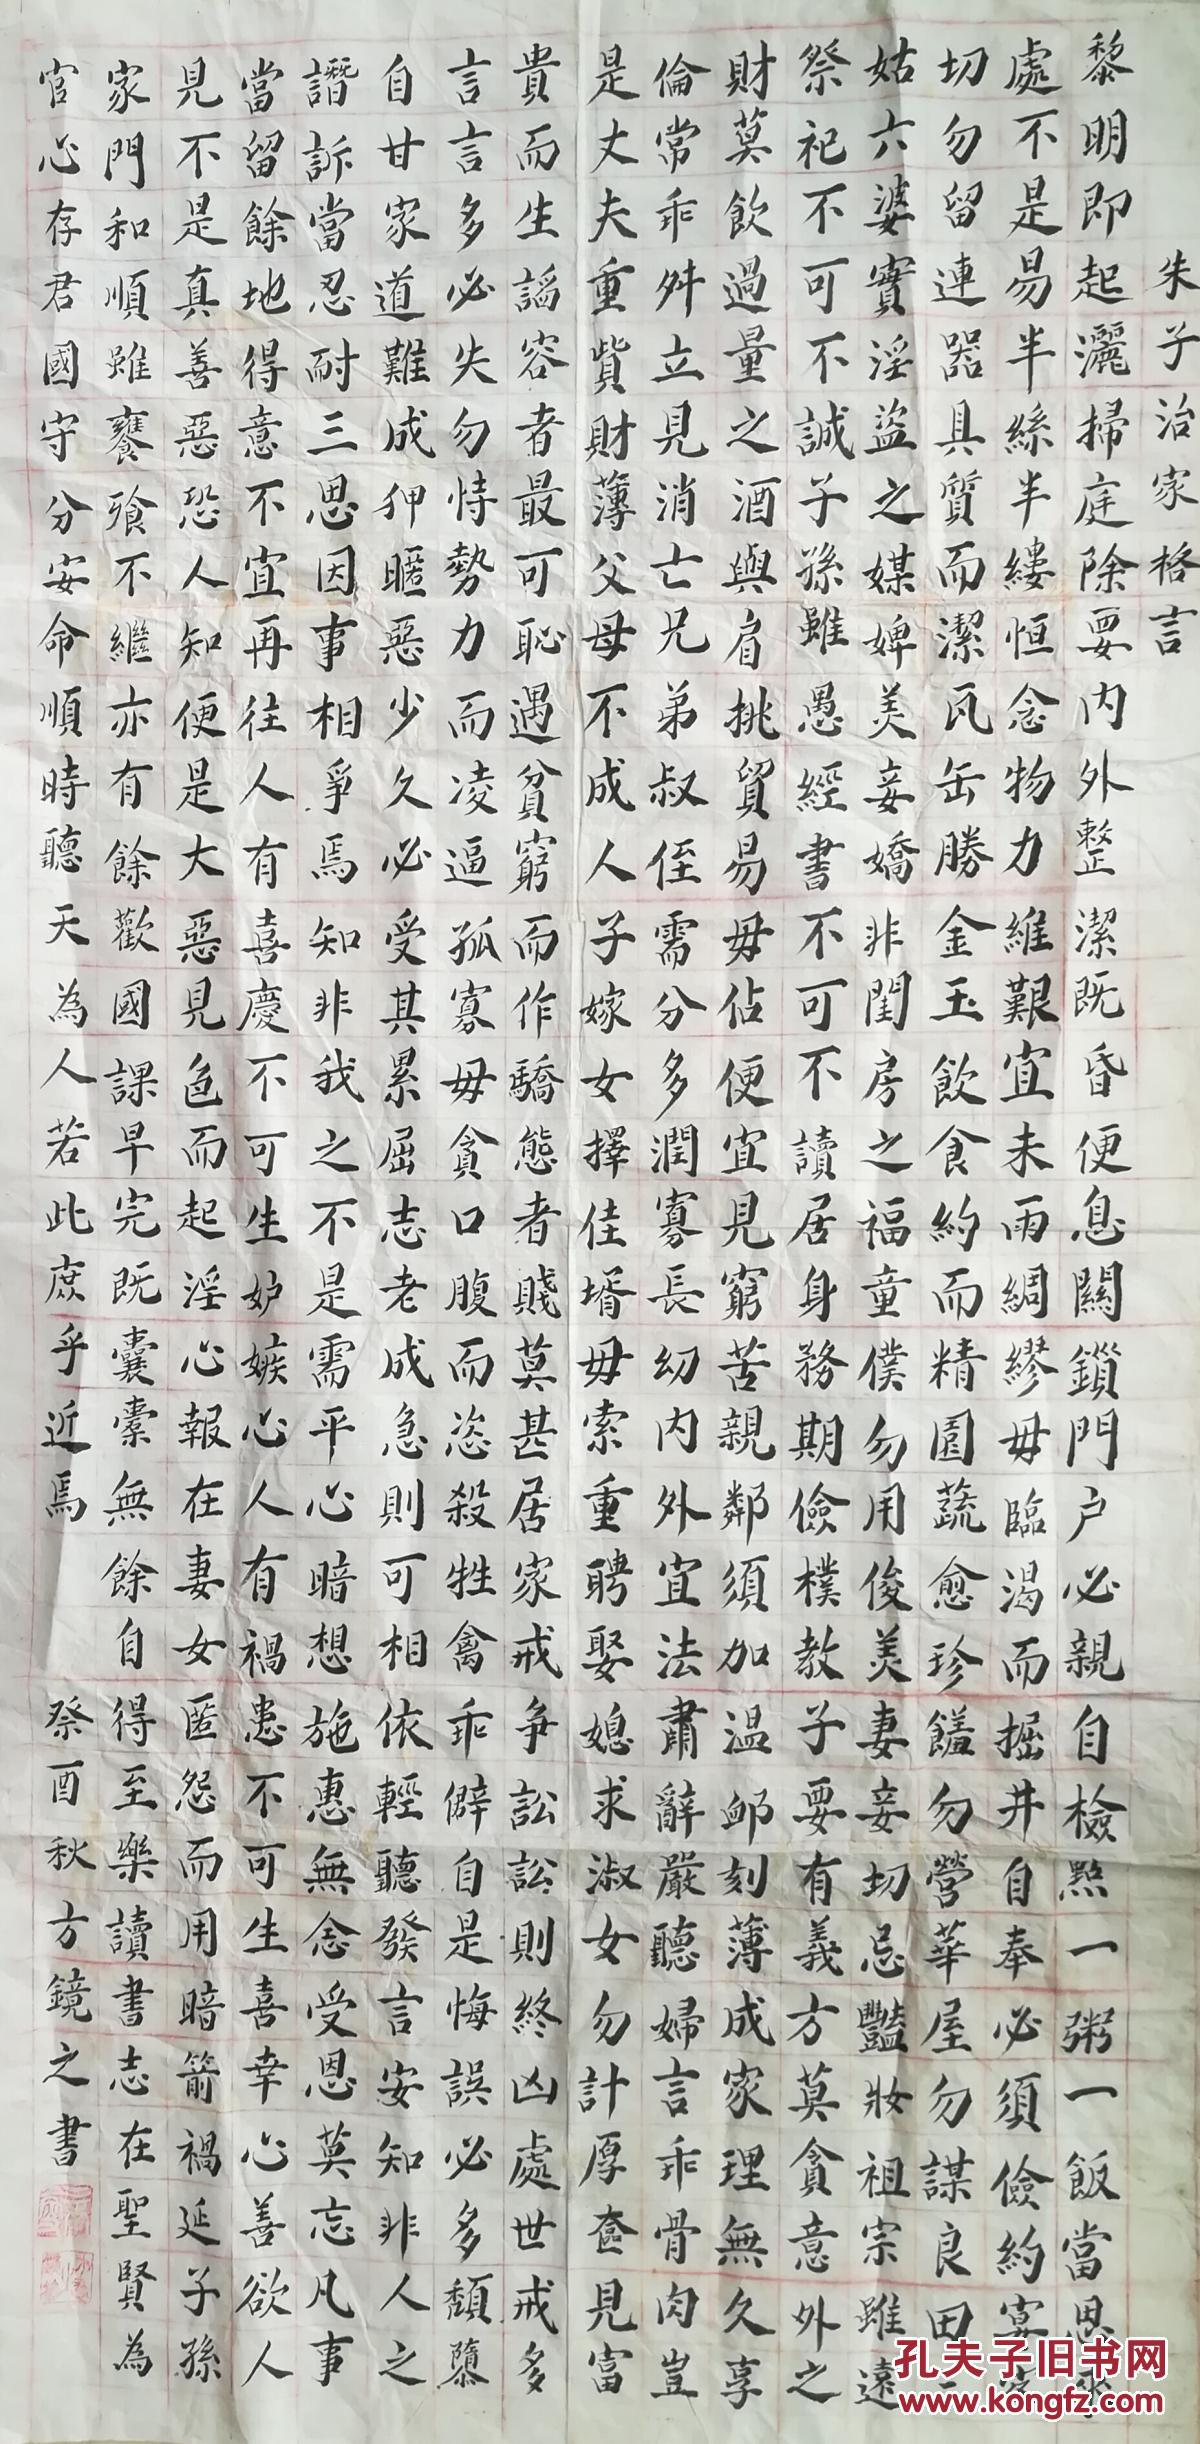 朱子治家格言
黎明即起灑掃庭除要内外整潔既昏便息關鎖門户必親自檢點一粥一飯當思來
處不是易半絲半縷恒念物力維艱宜未雨綢繆毋臨渴而掘井自奉必須儉約宴客
切勿留連器具質而潔瓦缶勝金玉飲食約而精園蔬愈珍饈勿營華屋勿謀良田三
姑六婆實淫盜之媒婢美妾嬌非閨房之福童僕勿用俊美妻妾切忌豔妝祖宗雖遠
祭祀不可不誠子孫雖愚經書不可不讀居身務期儉樸教子要有義方莫貪意外之
財莫飲過量之酒與肩挑貿易毋佔便宜見窮苦親鄰須加溫卹刻薄成家理無久享
倫常乖舛立見消亡兄弟叔侄需分多潤寡長幼内外宜法肅辭嚴聽婦言乖骨肉豈
是丈夫重貲財薄父母不成人子嫁女擇佳壻毋索重聘娶媳求淑女勿計厚奩見富
貴而生諂容者最可恥遇貧窮而作驕態者賤莫甚居家戒爭訟訟則終凶處世戒多
言言多必失勿恃勢力而凌逼孤寡毋貪口腹而恣殺牲禽乖僻自是悔誤必多頹隳
自甘家道難成狎暱惡少久必受其累屈志老成急則可相依輕聽發言安知非人之
譖訴當忍耐三思因事相爭焉知非我之不是需平心暗想施惠無念受恩莫忘凡事
當留餘地得意不宜再往人有喜慶不可生妒嫉心人有禍患不可生喜幸心善欲人
見不是真善惡恐人知便是大惡見色而起淫心報在妻女匿怨而用暗箭禍延子孫
家門和順雖饔飧不繼亦有餘歡國課早完既囊橐無餘自得至樂讀書志在聖賢為
官心存君國守分安命順時聽天為人若此庶乎近焉 癸酉秋方鏡之書
孔夫子旧书网
www.kongfz.com